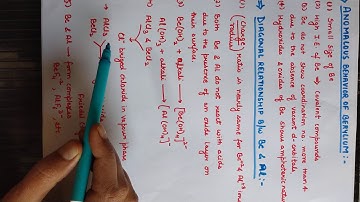 ⇒ ANOMALOUS BEHAVIOR OF BERYLLIUM:-
(1) Small size of Be
(2) High I.E & so → Covalent compounds
(3) Be do not show coordination no. more than 4
due to the absence of vacant d-orbital
(4) Hydroxides & oxides of Be shows amphoteric nature
⇒ DIAGONAL RELATIONSHIP B/w Be & Al :-
(1) Charge/Radius ratio is nearly same for Be+2 & Al+3
(2) Both Be & Al do not react with acids
due to the presence of an oxide layer on
their surface.
(3) Be(OH)2 + alkali → [Be(OH)4]2-
Al(OH)3 + alkali → [Al(OH)4]-
(4) AlCl3 & BeCl2
Cl- bridged chloride in vapour phase
→ AlCl3
BeCl2
(5) Be & Al → form complexes